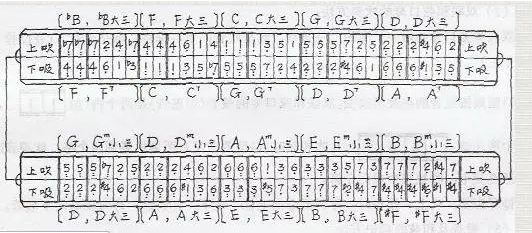 [♭B, ♭B大三][F, F大三][C, C大三][G, G大三][D, D大三]
上吹 ♭7 ♭7 ♭7 2 4 ♭7 4 4 4 6 1 4 1 1 1 3 5 1 5 5 5 7 2 5 2 2 2 #4 6 2 上吹
下吸 4 4 4 6 1 ♭3 1 1 1 3 5 ♭7 5 5 5 7 2 4 2 2 2 #4 6 1 6 6 6 #1 3 5 下吸
[F, F⁷][C, C⁷][G, G⁷][D, D⁷][A, A⁷]
[G, Gᵐ小三][D, Dᵐ小三][A, Aᵐ小三][E, Eᵐ小三][B, Bᵐ小三]
上吹 5 5 5 ♭7 2 5 2 2 2 4 6 2 6 6 6 1 3 6 3 3 3 5 7 3 7 7 7 2 #4 7 上吹
下吸 2 2 2 #4 6 2 6 6 6 #1 3 6 3 3 3 #5 7 3 7 7 7 #2 #4 7 #4 #4 #4 #6 #1 #4 下吸
[D, D大三][A, A大三][E, E大三][B, B大三][#F, #F大三]